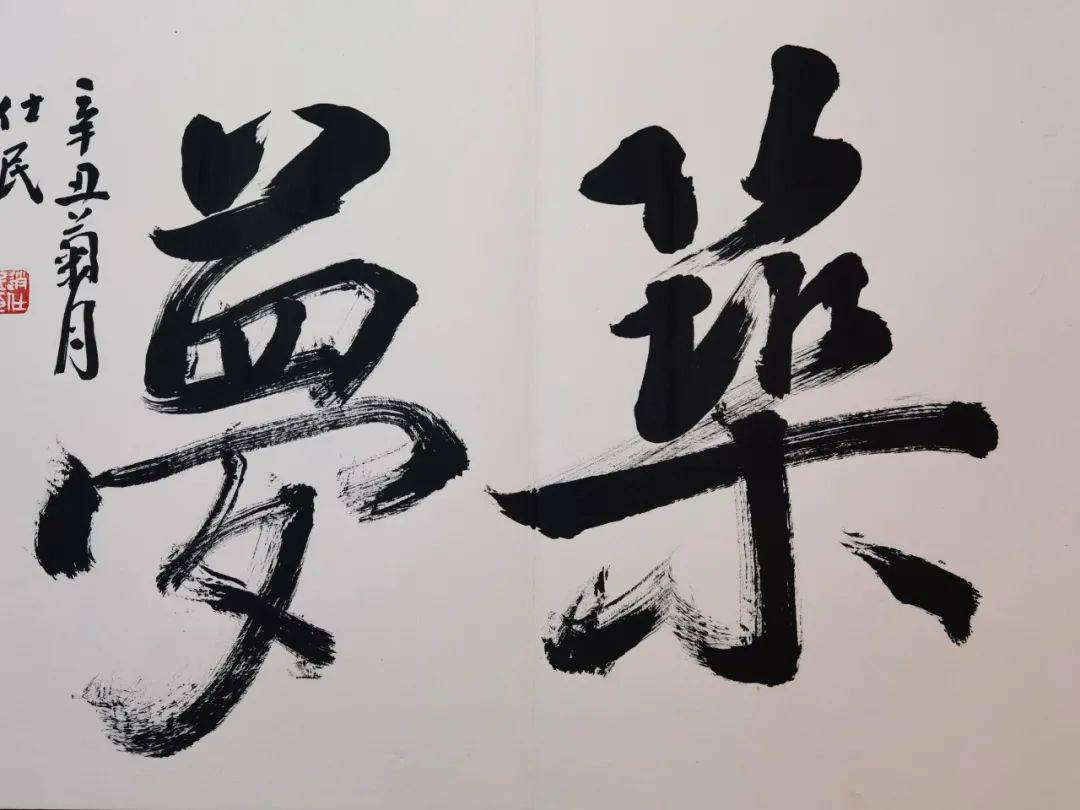 築夢
辛丑菊月
仕民